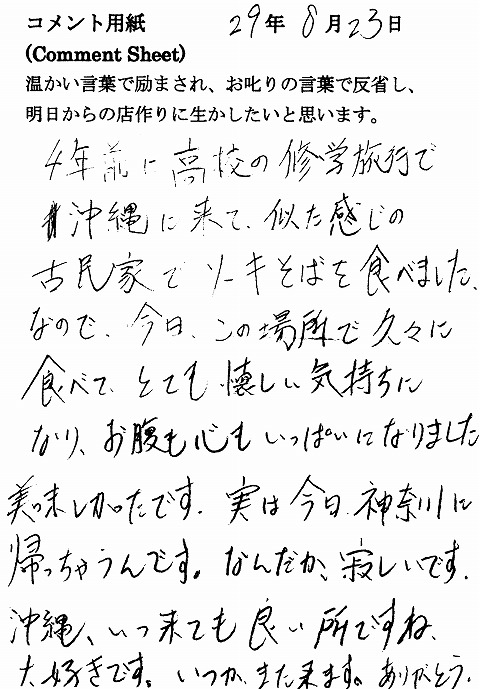 コメント用紙 29年 8月23日
(Comment Sheet)
温かい言葉で励まされ、お叱りの言葉で反省し、
明日からの店作りに生かしたいと思います。
4年前に高校の修学旅行で
沖縄に来て、似た感じの
古民家でソーキそばを食べました。
なので、今日、この場所で久々に
食べて、とても懐しい気持ちに
なり、お腹も心もいっぱいになりました
美味しかったです。実は今日、神奈川に
帰っちゃうんです。なんだか、寂しいです。
沖縄、いつ来ても良い所ですね、
大好きです。いつか、また来ます。ありがとう。